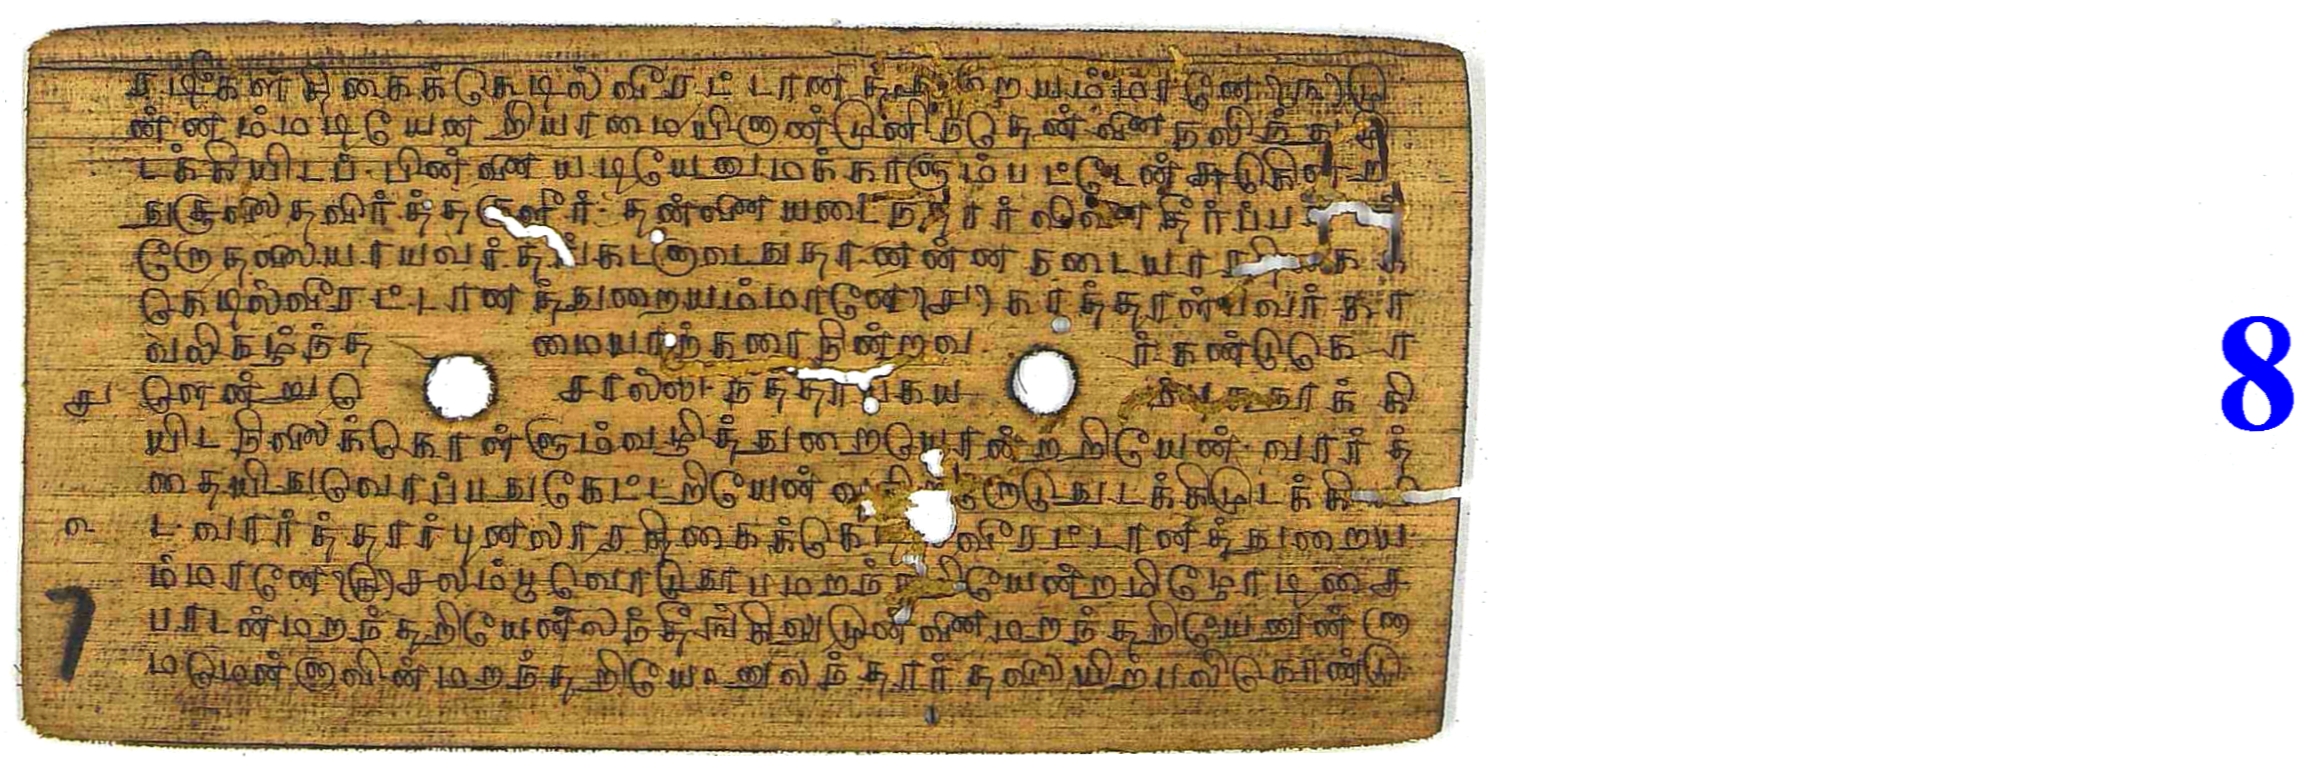 ரதிகைக்கெடில வீரட்டானத்துறையம்மானே (௩) மு
ன்னம்மடியேனறியாமையினான்முனிந்தென்னை நலிந்து மு
டக்கியிடப் பின்னையடியேனுமக்காளும்பட்டேன் சுடுகின்ற
துசூலைதவிர்த்தருளீர் தன்னையடைந்தார்வினைதீர்ப்ப
றோதலையாயவர்தங்கடனாவதுதானன்னநடையாரதிகைக்
கெடில்வீரட்டானத்துறையம்மானே (௪) காத்தாள்பவர்கா
வலிகழ்ந்த மையாற்கரைநின்றவ ர்கண்டுகொ
ளென்றுசொ
யிடநிலைக்கொள்ளும்வழித்துறையோன்றறியேன் வார்த்
தையிதுவொப்பதுகேட்டறியேன் வயிற்றோடுதுடக்கிமுடக்கியி
டவார்த்தார்புனலாரதிகைக்கெடில வீரட்டானத்துறைய
ம்மானே (௫) சலம்பூவொடுதூபமறந்தறியேன்றமிழோடிசை
பாடன்மறந்தறியேன்லந்தீங்கிலுமுன்னைமறந்தறியேனுன்னா
மமென்னாவின்மறந்தறியேனுலந்தார்தலையிற்பலிகொண்டு
7
8